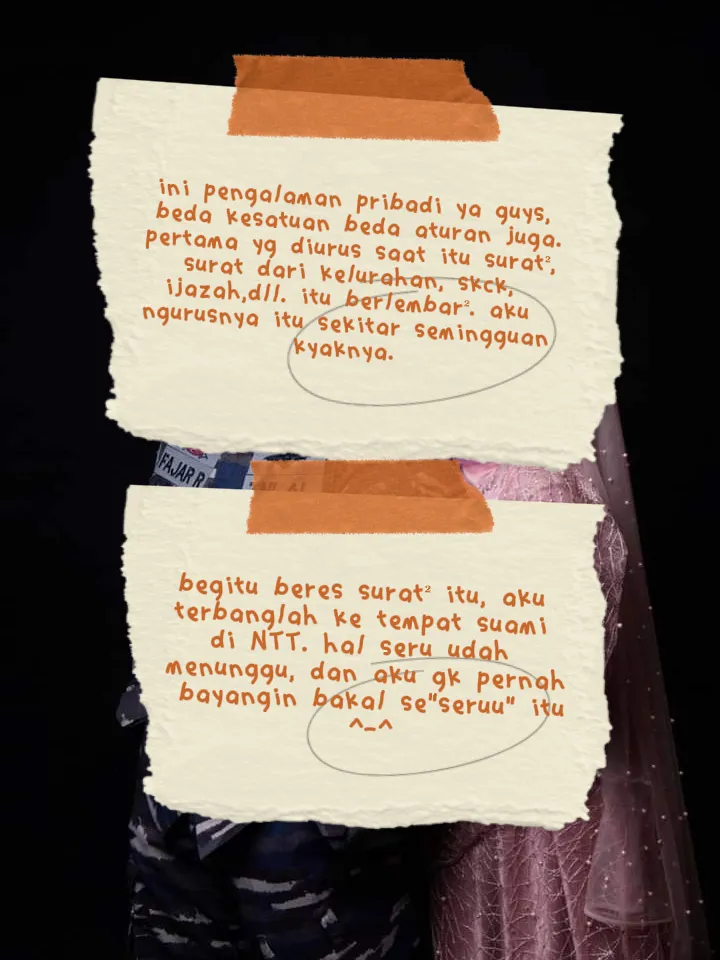 ini pengalaman pribadi ya guys,
beda kesatuan beda aturan juga.
pertama yg diurus saat itu surat²,
surat dari kelurahan, skck,
ijazah,dll. itu berlembar². aku
ngurusnya itu sekitar semingguan
kyaknya.
FAJAR R
begitu beres surat² itu, aku
terbanglah ke tempat suami
di NTT. hal seru udah
menunggu, dan aku gk pernah
bayangin bakal se"seruu" itu
^_^